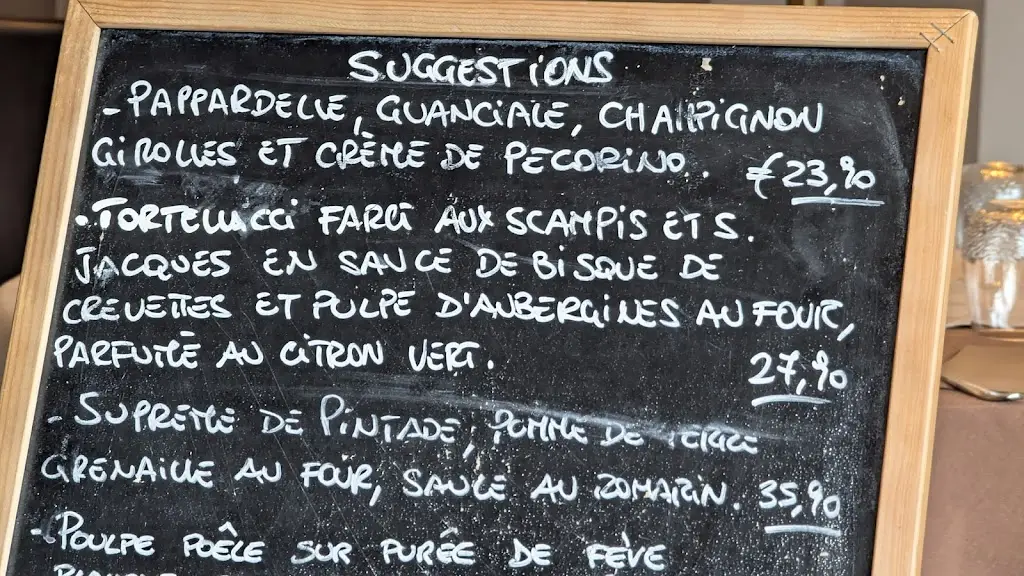 SUGGESTIONS
- PAPPARDELLE, GUANCIALE, CHAMPIGNON
GIROLLES ET CRÈME DE PECORINO. €23,90
- TORTELLUCCI FARCI AUX SCAMPIS ET S.
JACQUES EN SAUCE DE BISQUE DE
CREVETTES ET PULPE D'AUBERGINES AU FOUR,
PARFUMÉ AU CITRON VERT. 27,90
- SUPRÊME DE PINTADE, POMME DE TERRE
GRENAILLE AU FOUR, SAUCE AU ROMARIN. 35,90
- POULPE POÊLÉ SUR PURÉE DE FÈVE